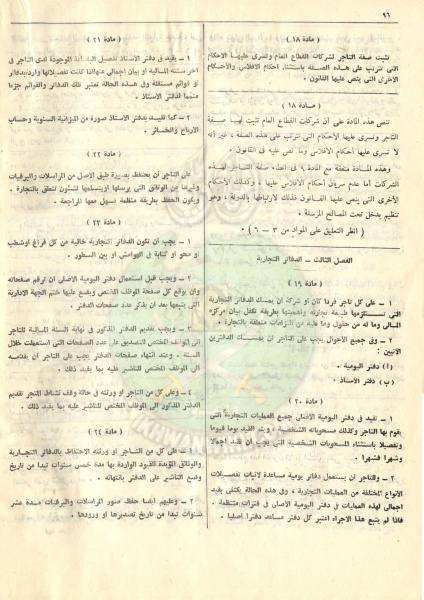 ٩٦
( مادة ١٨ )
تثبت صفة التاجر لشركات القطاع العام وتسرى عليها الأحكام
التى تترتب على هذه الصفة باستثناء أحكام الافلاس والأحكام
الأخرى التى ينص عليها القانون .
( مادة ١٨ )
تنص هذه المادة على أن شركات القطاع العام تثبت لها صفة
التاجر وتسرى عليها الأحكام التى تترتب على هذه الصفة ، غير أنه
لا تسرى عليها أحكام الافلاس وما نص عليه فى القانون .
وهذه المادة متفقة مع المادة ٩ فى اعطاء صفة التاجر لهذه
الشركات أما عدم سريان أحكام الافلاس عليها ، وكذلك الأحكام
الأخرى التى ينص عليها القانون فذلك لارتباطها بالدولة ، وهو
تنظيم يدخل تحت المصالح المرسلة .
( انظر التعليق على المواد من ٣ – ٦ )
الفصل الثالث – الدفاتر التجارية
( مادة ١٩ )
١ – على كل تاجر فردا كان أو شركة أن يمسك الدفاتر التجارية
التى تستلزمها طبيعة تجارته وأهميتها بطريقة تكفل بيان مركزه
المالى وما له من حقوق وما عليه من التزامات متعلقة بالتجارة .
٢ – وفى جميع الأحوال يجب على التاجر أن يمسك الدفترين
الآتيين :
(أ) دفتر اليومية .
(ب) دفتر الأستاذ .
( مادة ٢٠ )
١ – تقيد فى دفتر اليومية الأصلى جميع العمليات التجارية التى
يقوم بها التاجر وكذلك مسحوباته الشخصية ، ويتم القيد يوما فيوما
وتفصيلا باستثناء المسحوبات الشخصية التى يجب أن تقيد اجمالا
وشهرا فشهرا .
٢ – وللتاجر أن يستعمل دفاتر يومية مساعدة لاثبات تفصيلات
الأنواع المختلفة من العمليات التجارية ، وفى هذه الحالة يكتفى بقيد
اجمالى لهذه العمليات فى دفتر اليومية الأصلى فى فترات منتظمة .
فاذا لم يتبع هذا الاجراء اعتبر كل دفتر مساعد دفترا أصليا .
( مادة ٢١ )
١ – يقيد فى دفتر الأستاذ تفصيل البضاعة الموجودة لدى التاجر فى
آخر سنته المالية أو بيان اجمالى عنها اذا كانت تفصيلاتها واردة بدفاتر
أو قوائم مستقلة وفى هذه الحالة تعتبر تلك الدفاتر والقوائم جزءا
متمما لدفتر الأستاذ .
٢ – كما تقيد بدفتر الأستاذ صورة من الميزانية السنوية وحساب
الأرباح والخسائر .
( مادة ٢٢ )
على التاجر أن يحتفظ بصورة طبق الأصل من المراسلات والبرقيات
وغيرها من الوثائق التى يرسلها أو يتسلمها لشئون تتعلق بالتجارة .
ويكون الحفظ بطريقة منظمة تسهل معها المراجعة .
( مادة ٢٣ )
١ – يجب أن تكون الدفاتر التجارية خالية من كل فراغ أو شطب
أو محو أو كتابة فى الهوامش أو بين السطور .
٢ – ويجب قبل استعمال دفتر اليومية الأصلى أن ترقم صفحاته
وأن يوقع كل صفحة الموظف المختص ويضع عليها ختم الجهة الادارية
التى يتبعها بعد أن يذكر عدد صفحات الدفتر .
٣ – ويجب تقديم الدفتر المذكور فى نهاية السنة المالية للتاجر
الى الموظف المختص للتصديق على عدد الصفحات التى استعملت خلال
السنة . وعند انتهاء صفحات الدفتر يجب على التاجر أن يقدمه
الى الموظف المختص للتأشير عليه بما يفيد ذلك .
٤ – وعلى كل من التاجر أو ورثته فى حالة وقف نشاط المتجر تقديم
الدفتر المذكور الى الموظف المختص للتأشير عليه بما يفيد ذلك .
( مادة ٢٤ )
١ – على كل من التاجر أو ورثته الاحتفاظ بالدفاتر التجارية
والوثائق المؤيدة للقيود الواردة بها مدة خمس سنوات تبدأ من تاريخ
وضع التأشير على الدفتر بانتهائه .
٢ – وعليهم أيضا حفظ صور المراسلات والبرقيات مدة عشر
سنوات تبدأ من تاريخ تصديرها أو ورودها .